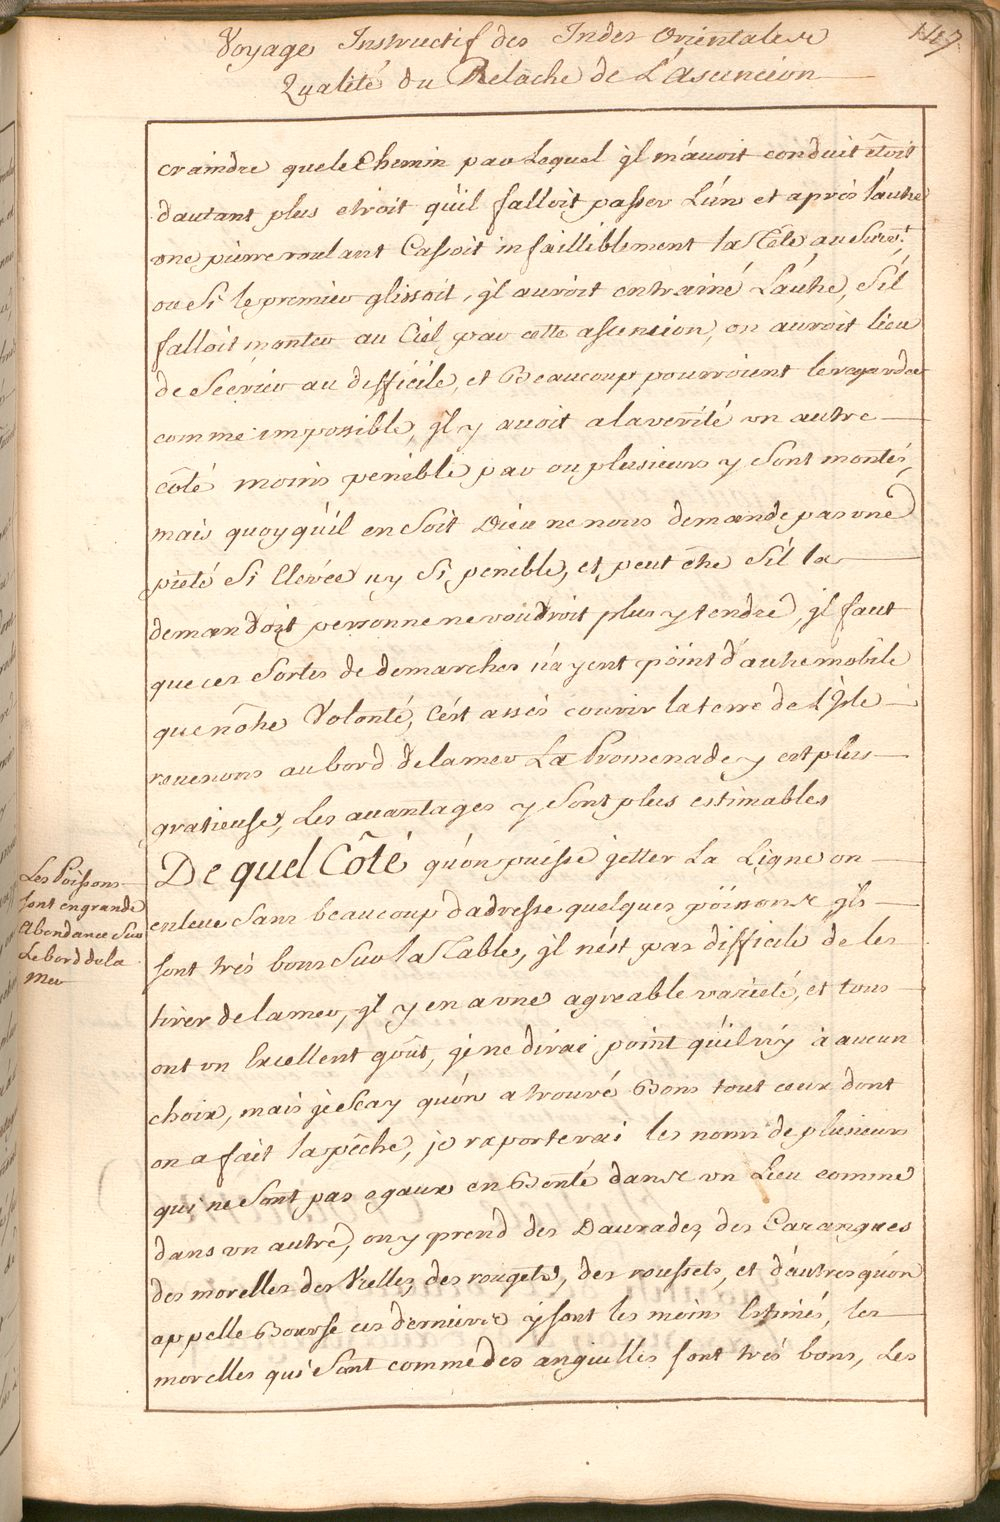 Voyage Instructif des Indes Orientales
147.
Qualité du Relâche de L'asuncion
craindre que le Chemin par Lequel jl m'avoit conduit étoit
d'autant plus etroit qu'il falloit passer L'un et aprés l'autre
une pierre roulant Cassoit infailliblement la Tête au Suiv.t,
ou Si le premier glissoit, jl auroit entrainé L'autre, S'il
falloit monter au Ciel par cette ascension, on auroit lieu
de Secrier au difficile, et Beaucoup pourroient le regarder
comme impossible, jl y avoit a la verité un autre
côté moins penible par ou plusieurs y Sont montés,
mais quoy qu'il en Soit Dieu ne nous demande pas une
pieté Si Elevée ny Si penible, et peut être S'il la
demandoit personne ne voudroit plus y tendre, jl faut
que ces Sortes de demarches n'ayent point d'autre mobile
que nôtre Volonté, C'est assés courir la terre de L'Isle
revenons au bord de la mer La Promenade y est plus
gratieuse, Les avantages y Sont plus estimables
De quel Côté qu'on puisse jetter La Ligne on
Les Poissons
sont en grande
Abondance Sur
Le bord de la
Mer
enleve Sans beaucoup d'adresse quelques poissons jls
sont trés bons Sur la Table, jl n'est pas difficile de les
tirer de la mer, jl y en a une agreable varieté, et tous
ont un Excellent goût, je ne dirai point qu'il n'y à aucun
choix, mais je Scay qu'on a trouvé Bons tout ceux dont
on a fait la pêche, je raporterai les noms de plusieurs
qui ne Sont pas egaux en Bonté dans un Lieu comme
dans un autre, on y prend des Daurades, des Carangues
des morelles des Vielles, des rougets, des roussets, et d'autres qu'on
appelle Bourse ces derniers y sont les moins Estimés, les
morelles qui Sont comme des anguilles sont trés bons, Les